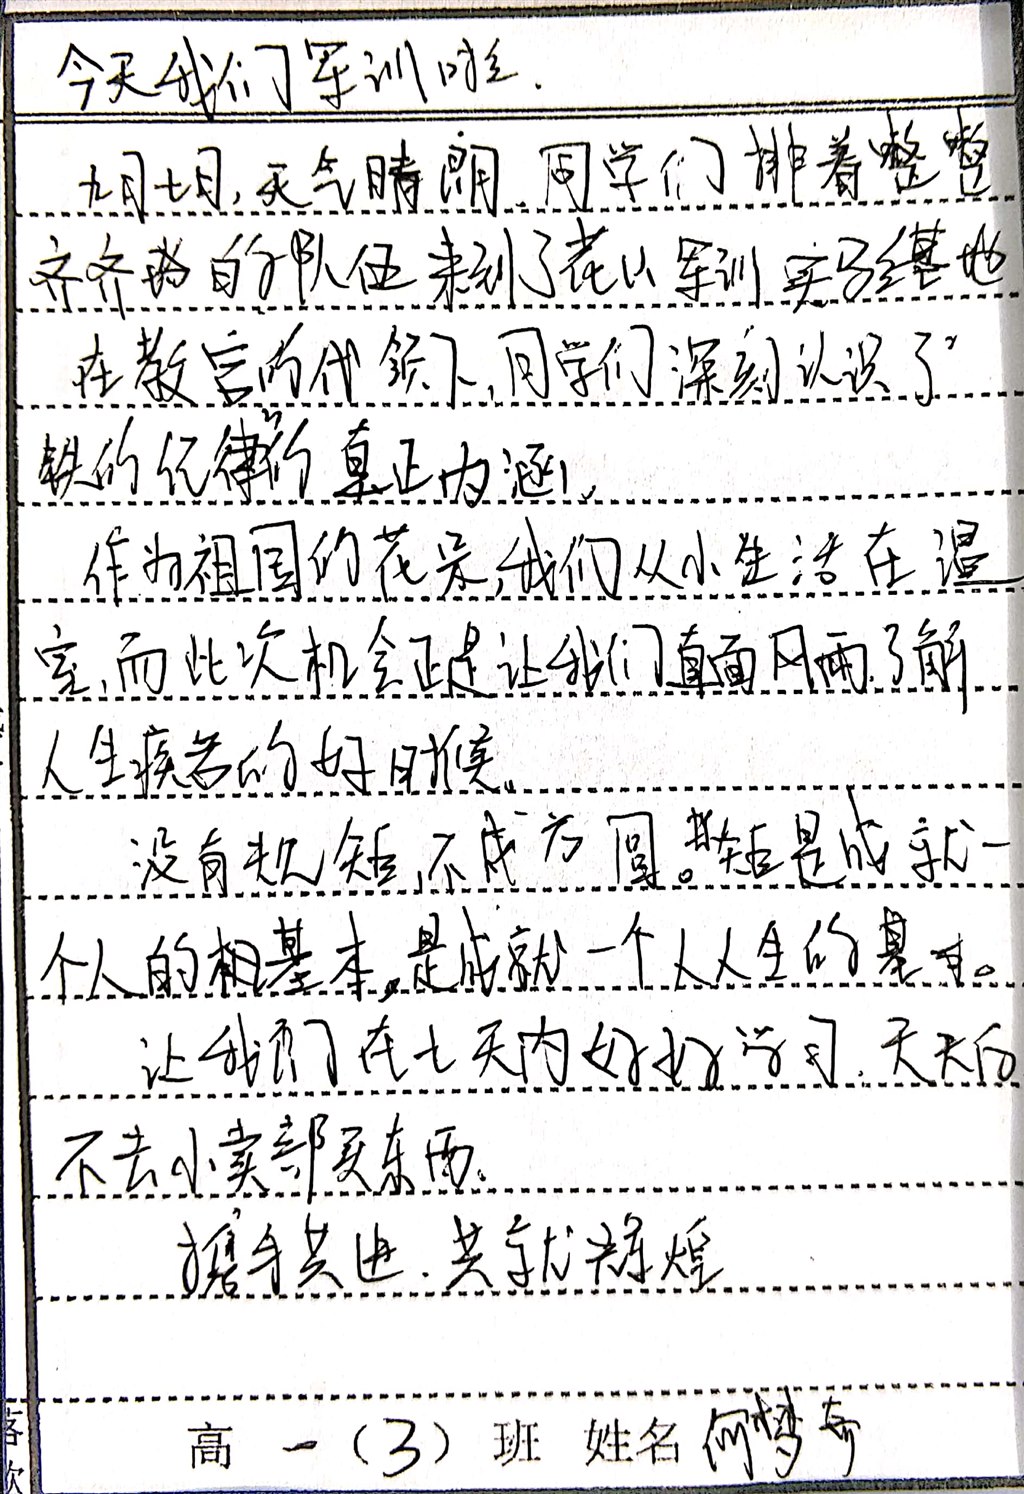 今天我们军训啦.
九月七日,天气晴朗.同学们排着整整
齐齐的队伍来到了花山军训实验基地
在教官的代领下,同学们深刻认识了“
铁的纪律”的真正内涵。
作为祖国的花朵,我们从小生活在温
室,而此次机会正是让我们直面风雨.了解
人生疾苦的好时候。
没有规矩,不成方圆。矩是成就一
个人的基本,是成就一个人人生的基本。
让我们在七天内好好学习.天天向
不去小卖部买东西.
携手共进.共就辉煌
高一(3)班 姓名何梦奇
落款